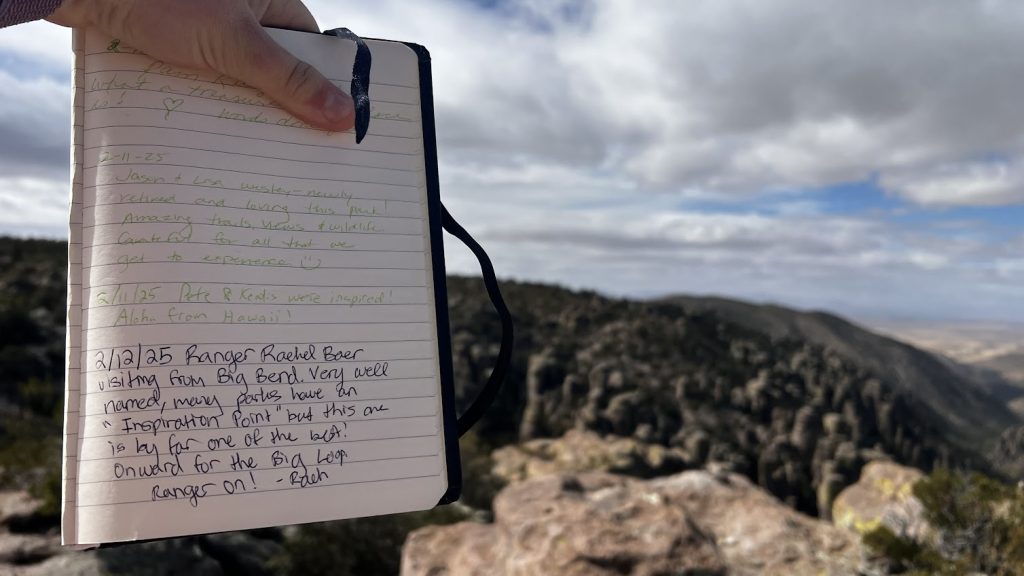 What a treasure
is! ♡ words
2-11-25
Jason & Lisa Wesley - newly
retired and loving this park!
Amazing trails, views & wildlife.
Grateful for all that we
get to experience ☺
2/11/25 Pete & were inspired!
Aloha from Hawaii!
2/12/25 Ranger Rachel Baer
visiting from Big Bend. Very well
named, many parks have an
"Inspiration Point" but this one
is by far one of the best!
Onward for the Big Loop
Ranger on! -